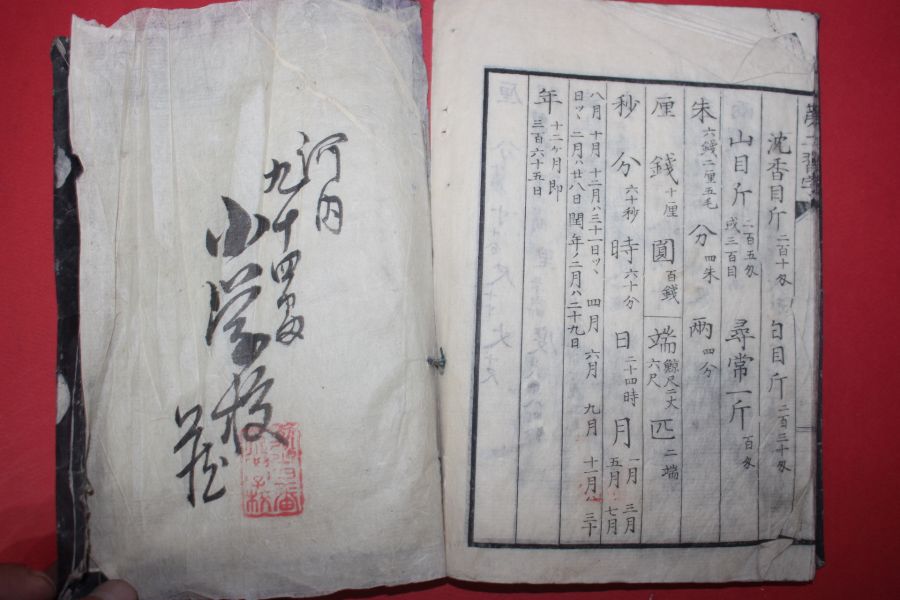 沈香目斤 二百十匁 白目斤 二百三十匁
山目斤 二百五匁 或三百目 尋常一斤 百匁
朱 六錢二厘五毛 分 四朱 兩 四分
厘 錢 十厘 圓 百錢 端 鯨尺二丈六尺 匹 二端
秒 分 六十秒 時 六十分 日 二十四時 月 一月 三月 五月 七月
八月 十月 十二月ハ三十一日ツヽ 四月 六月 九月 十一月ハ三十
日ツヽ 二月ハ廿八日 閏年ノ二月ハ二十九日
年 十二ヶ月即 三百六十五日
河内
九十四番
小学校
蔵